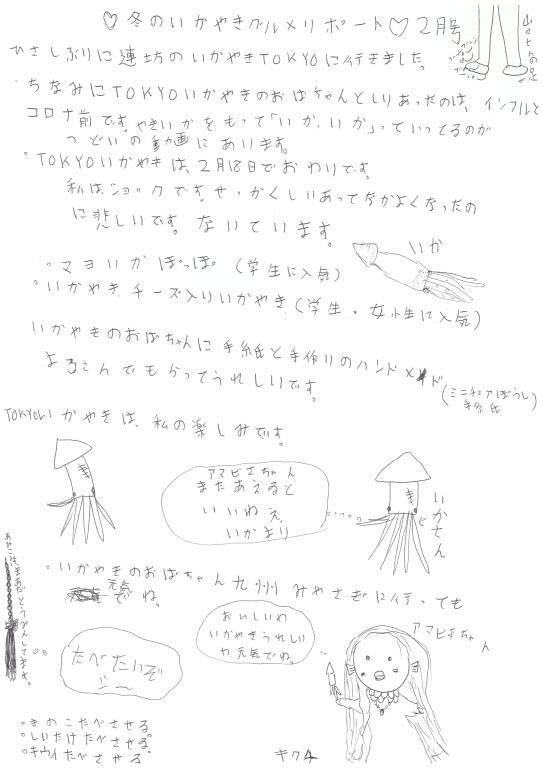 ♡冬のいかやきグルメリポート♡2月号
山口さんの足
ひさしぶりに連坊のいかやきTOKYOに行きました。
ちなみにTOKYOいかやきのおばちゃんとしりあったのは、インフルと
コロナ前です。やきいかをもって「いか、いか」っていってるのが
つどいの動画にあります。
°TOKYOいかやきは、2月18日でおわりです。
私はショックです。せっかくしいあってなかよくなったの
に悲しいです。ないています。
いか
°マヨいかぽっぽ (学生に人気)
°いかやき、チーズ入りいかやき、(学生。女性に人気)
いかやきのおばちゃんに手紙と手作りのハンドメイド
よろさんでもらってうれしいです。
(ミニチュアぼうし)
手紙
TOKYOいかやきは、私の楽しみです。
アマビエちゃん
またあえると
いいねえ
いかより
いかさん
°いかやきのおばちゃん九州みやざきに行っても
元気でね。
たべたいぞ
シ〜
おいしいわ
いかやきうれしい
わ元気でね。
アマビエちゃん
°きのこたべさせる。
°しいたけたべさせる。
°キウイたべさせる。